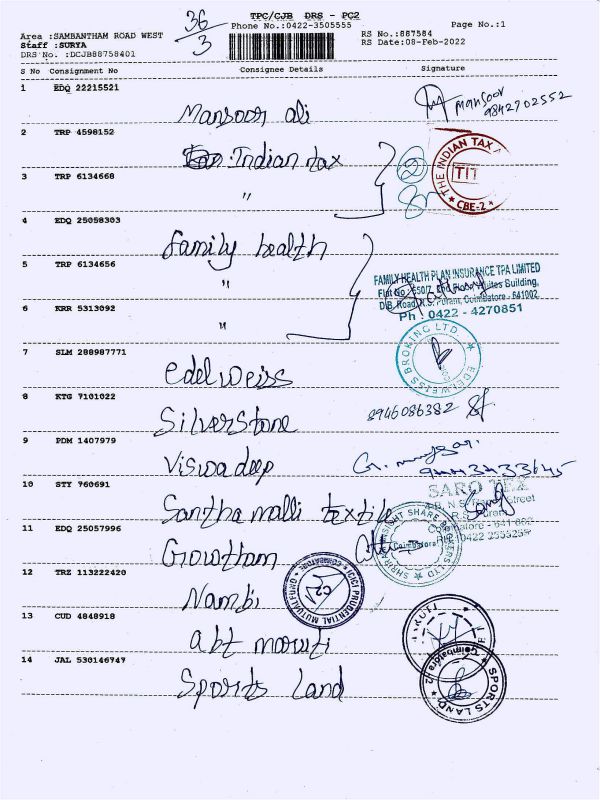 36
3
TPC/CJB DRS - PC2
Phone No.:0422-3505555
Page No.:1
Area :SAMBANTHAM ROAD WEST
RS No.:887584
Staff :SURYA
RS Date:08-Feb-2022
DRS No. :DCJB88758401
S No Consignment No Consignee Details Signature
1 EDQ 22215521
Mansoor ali
Mansoor
9842702552
2 TRP 4598152
Indian tax
THE INDIAN TAX
TIT
CBE-2
3 TRP 6134668
"
4 EDQ 25058303
family health
5 TRP 6134656
"
FAMILY HEALTH PLAN INSURANCE TPA LIMITED
D.B. Road, R.S. Puram, Coimbatore - 641002.
Ph : 0422 - 4270851
6 KRR 5313092
"
7 SLM 288987771
Edelweiss
EDELWEISS BROKING LTD.
8 KTG 7101022
Silverstone
8946086382
9 PDM 1407979
Viswadeep
10 STY 760691
Santha malli textile
SARO TEX
11 EDQ 25057996
Gowtham
Coimbatore
12 TRZ 113222420
Nambi
ICICI PRUDENTIAL MUTUAL FUND
COIMBATORE
13 CUD 4848918
abt maruti
14 JAL 530146747
Sports Land
SPORTS LAND